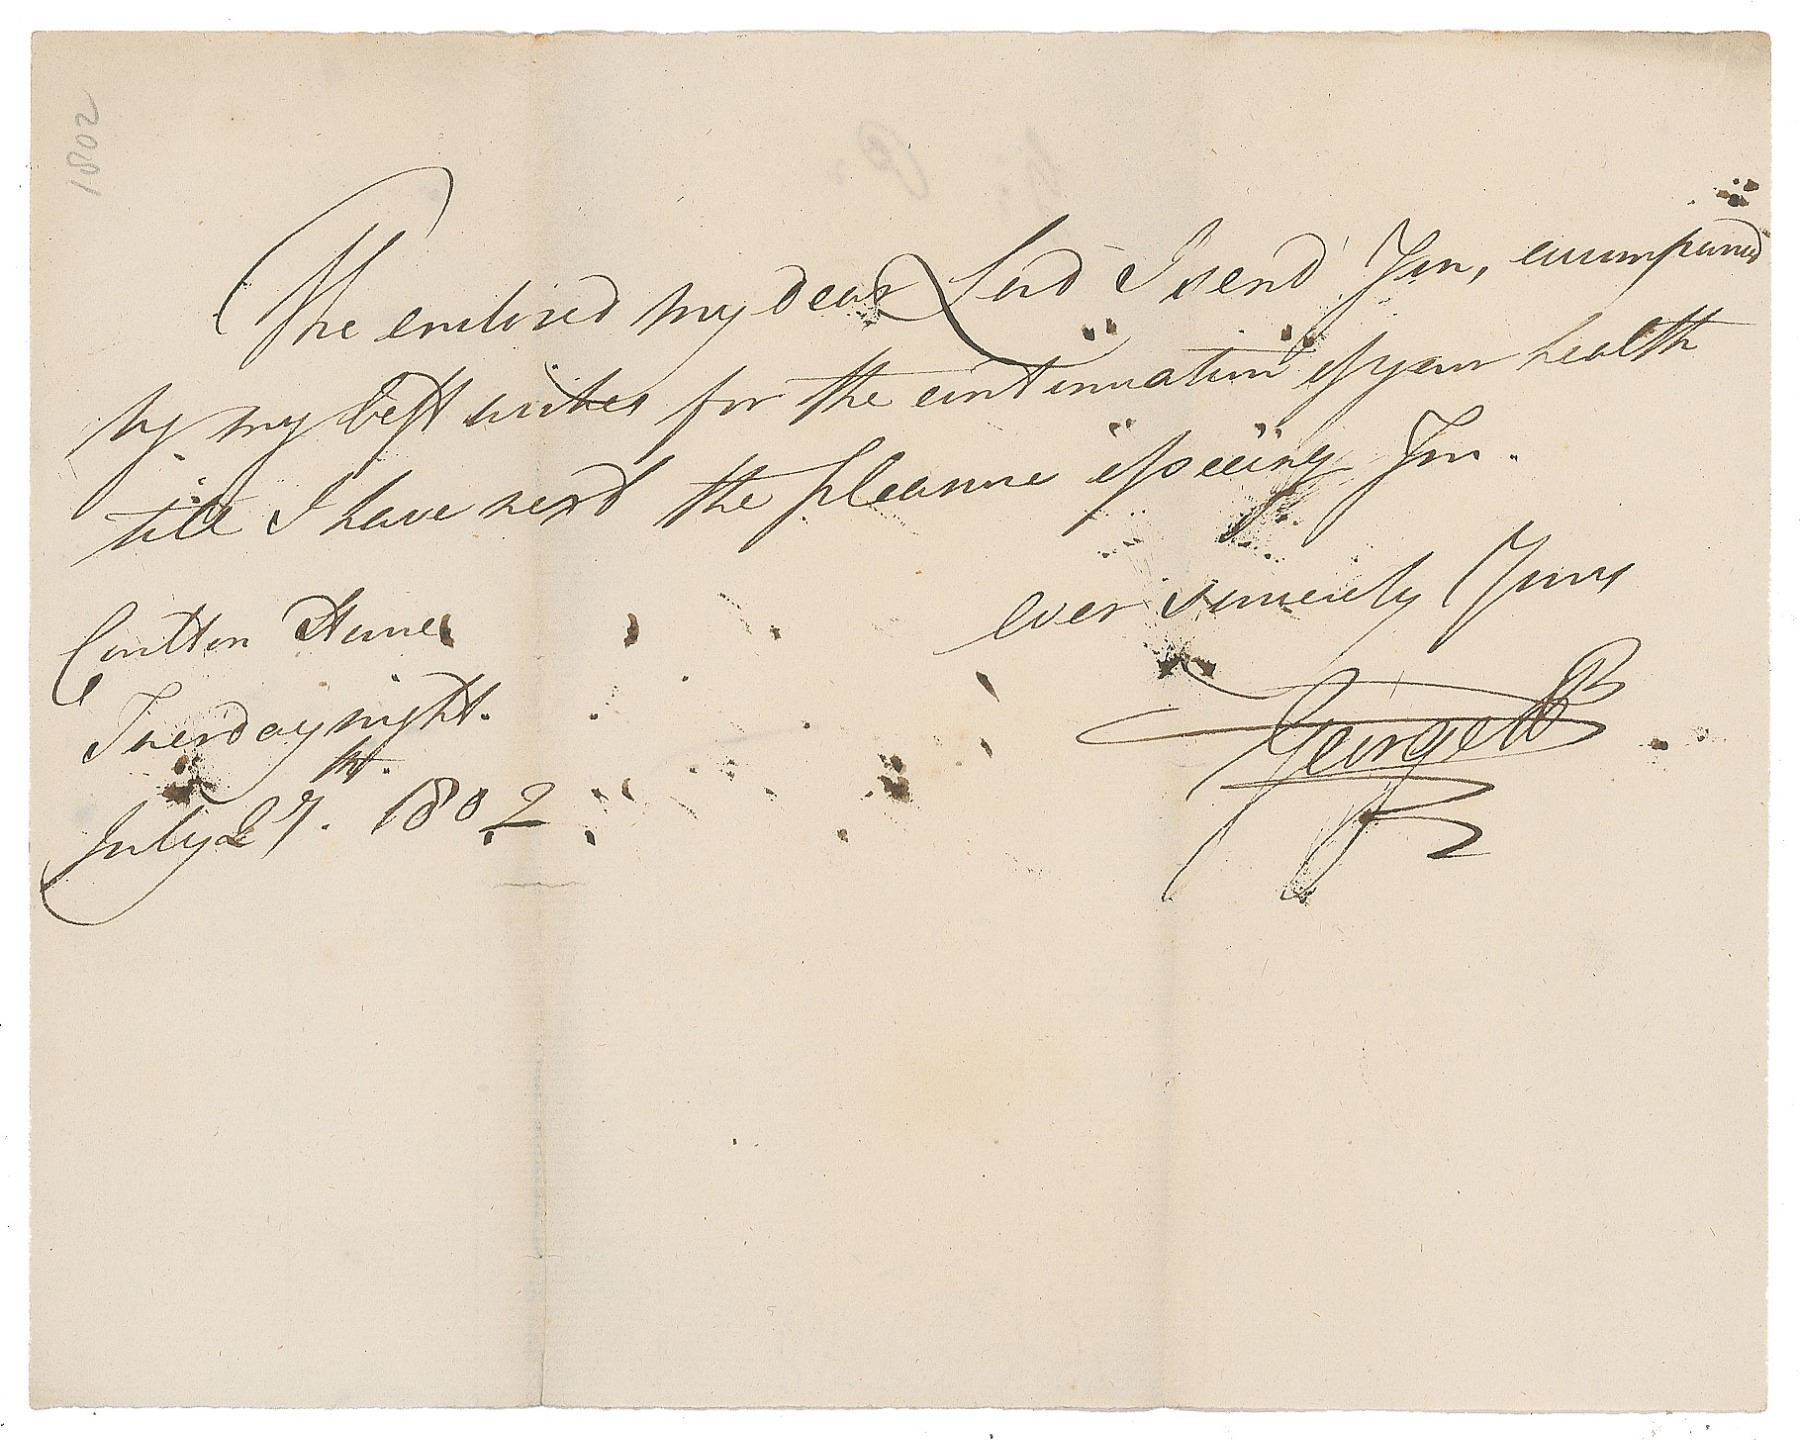 1802
The enclosed my dear Lord I send You, accompanied
by my best wishes for the continuation of your health
till I have next the pleasure of seeing You.
ever sincerely Yours
Carlton House
Tuesday night.
July 27th. 1802
George P